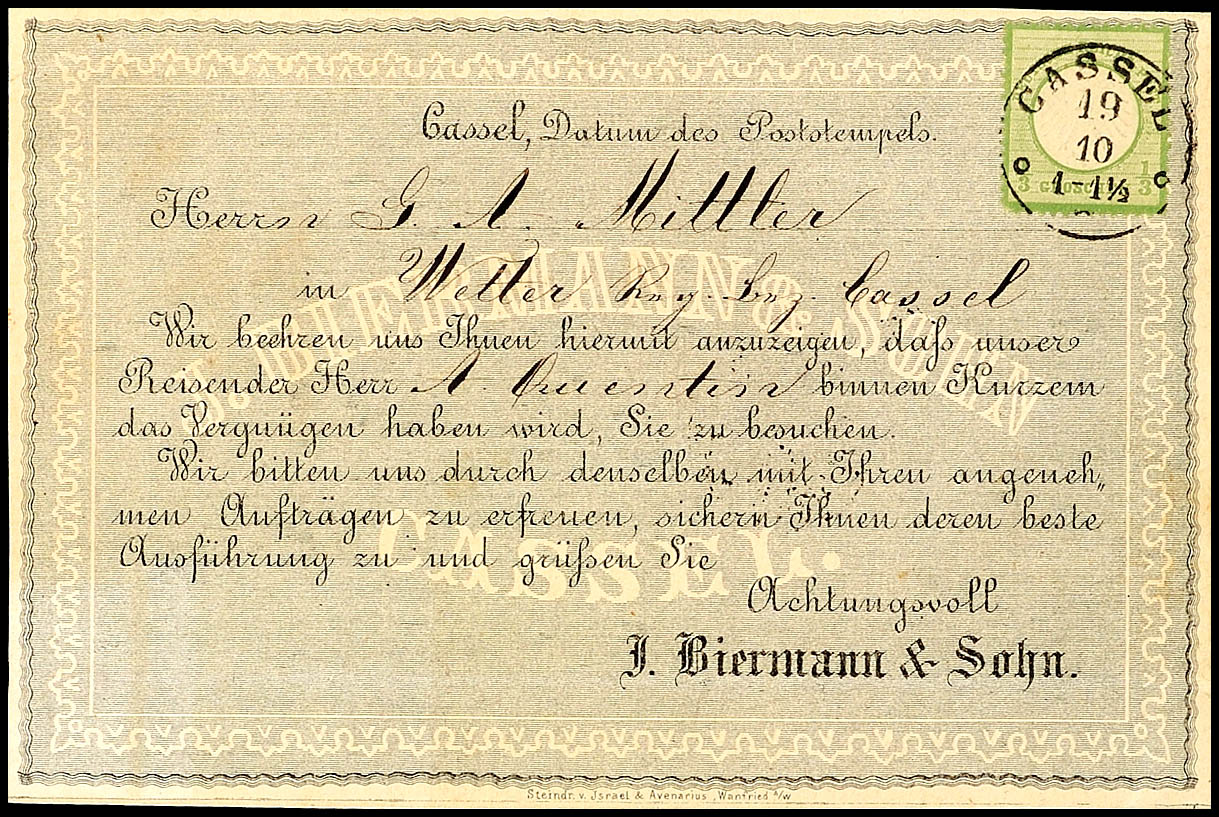 Cassel, Datum des Poststempels.
Herrn G. A. Mittler
in Wetter Reg. Bez. Cassel
Wir beehren uns Ihnen hiermit anzuzeigen, daſs unser
Reisender Herr A. Quentin binnen Kurzem
das Vergnügen haben wird, Sie zu besuchen.
Wir bitten uns durch denselben mit Ihren angeneh„
men Aufträgen zu erfreuen, sichern Ihnen deren beste
Ausführung zu und grüſsen Sie
Achtungsvoll
J. Biermann & Sohn.
Steindr. v. Jsrael & Avenarius, Wanfried a/w
J. BIERMANN & SOHN
CASSEL.
CASSEL
19
10
1-1½
1/3 GROSCHEN 1/3